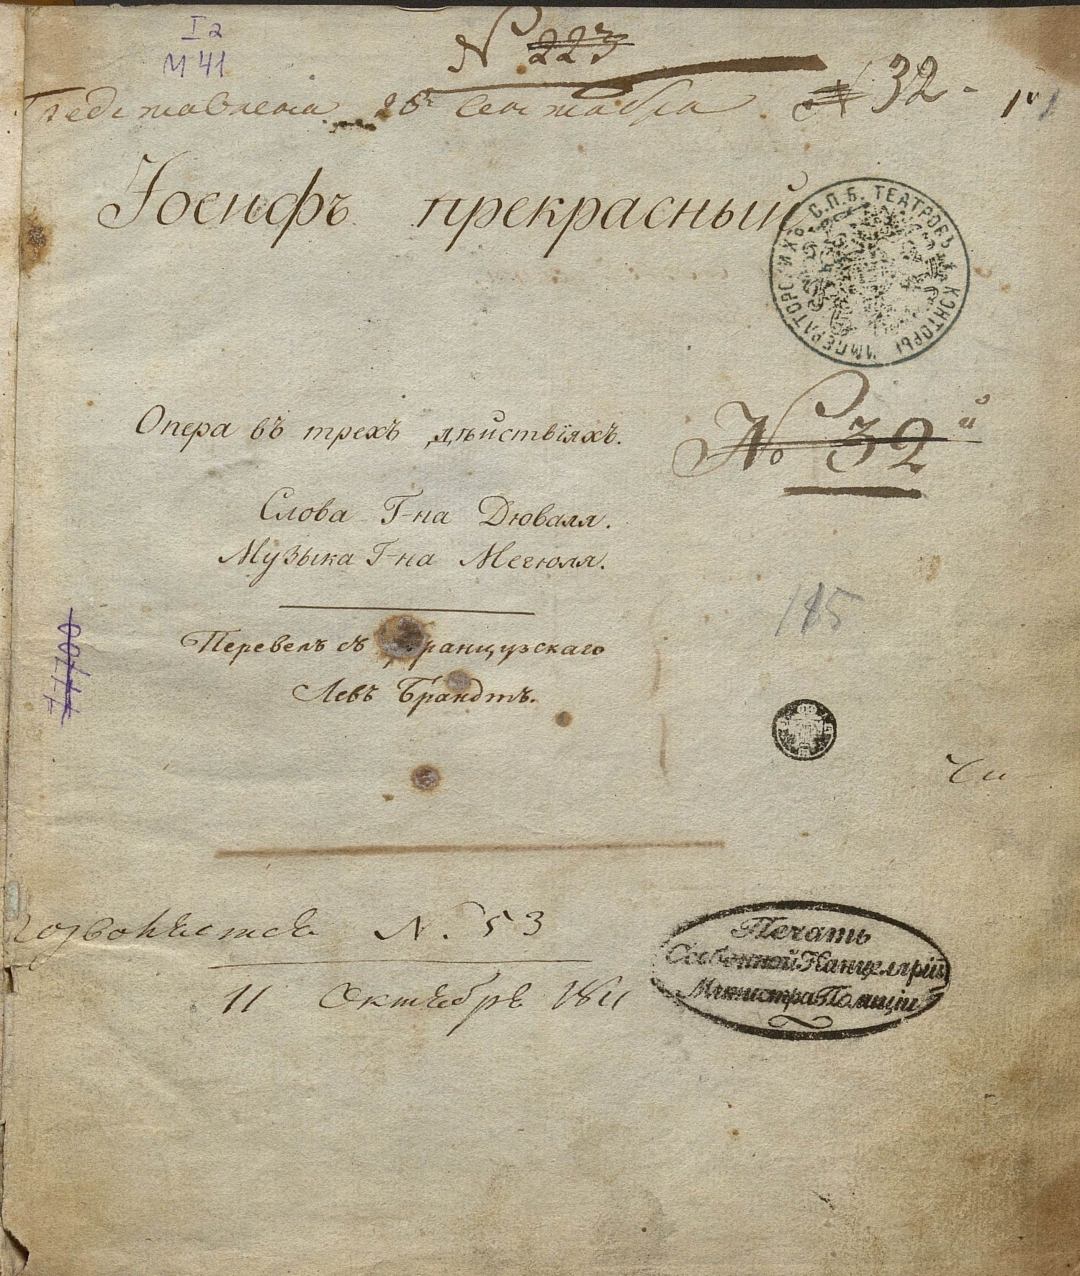 I 2
М 41
N 223
Представлена 26 сентября N 32 -
Іосифъ прекрасный
ИМПЕРАТОРСКИХЪ С.П.Б. ТЕАТРОВЪ КОНТОРЫ
Опера въ трехъ дѣйствіяхъ.
№ 32й
Слова Г-на Дюваля.
Музыка Г-на Мегюля.
185
Перевелъ съ французскаго
Левъ Брандтъ.
Позволяется N. 53
11 Октября 1811
Печать
Особенной Канцеляріи
Министра Полиціи